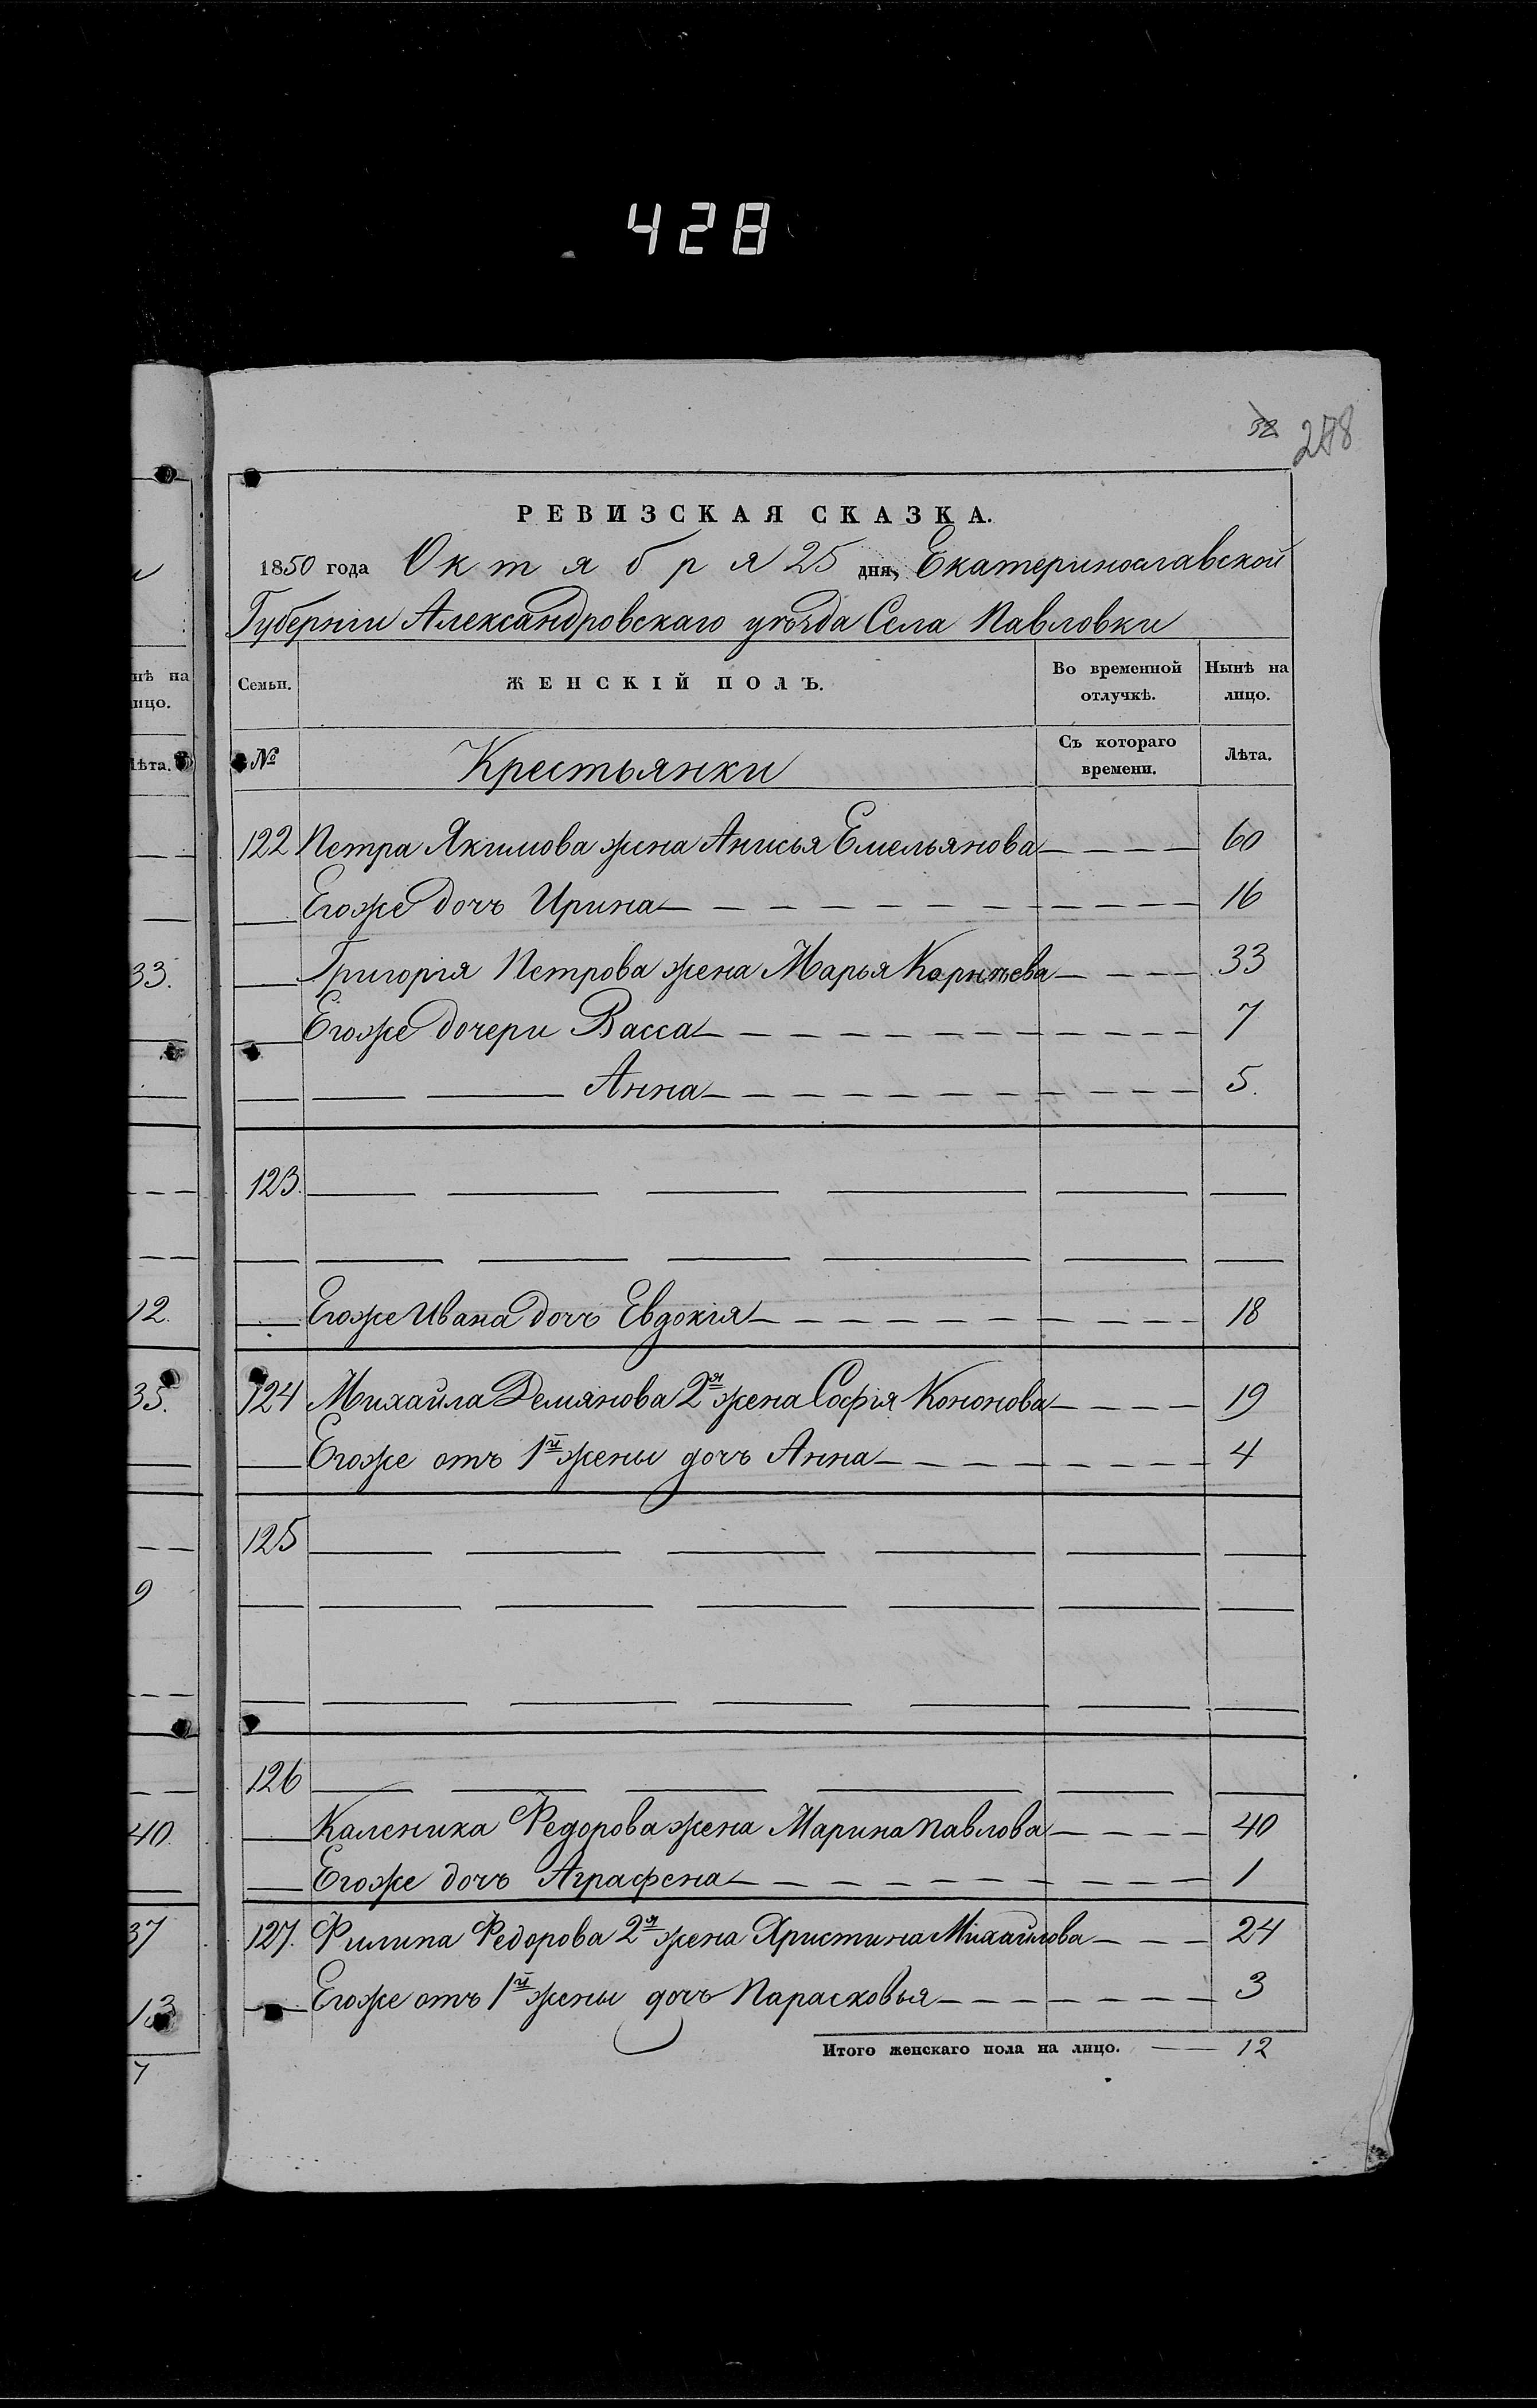 428
52 278
РЕВИЗСКАЯ СКАЗКА.
1850 года Октября 25 дня, Екатеринославской
Губерніи Александровскаго уѣзда Села Павловки
Семьи. ЖЕНСКІЙ ПОЛЪ. Во временной отлучкѣ. Нынѣ на лицо.
№ Крестьянки Съ котораго времени. Лѣта.
122 Петра Якимова жена Анисья Емельянова 60
Егоже дочь Ирина 16
Григорія Петрова жена Марья 33
Егоже дочери Васса 7
Анна 5.
123.
Егоже Ивана дочь Евдокія 18
124 Михайла Демянова 2я жена Софія Кононова 19
Егоже отъ 1й жены дочь Анна 4
125
126
Каленика Федорова жена Марина Павлова 40
Егоже дочь Аграфена 1
127. Филипа Федорова 2я жена Христина Михайлова 24
Егоже отъ 1й жены дочь Парасковья 3
Итого женскаго пола на лицо. 12
нѣ на
лицо.
Лѣта.
33.
12.
35.
9
40.
37
13
7